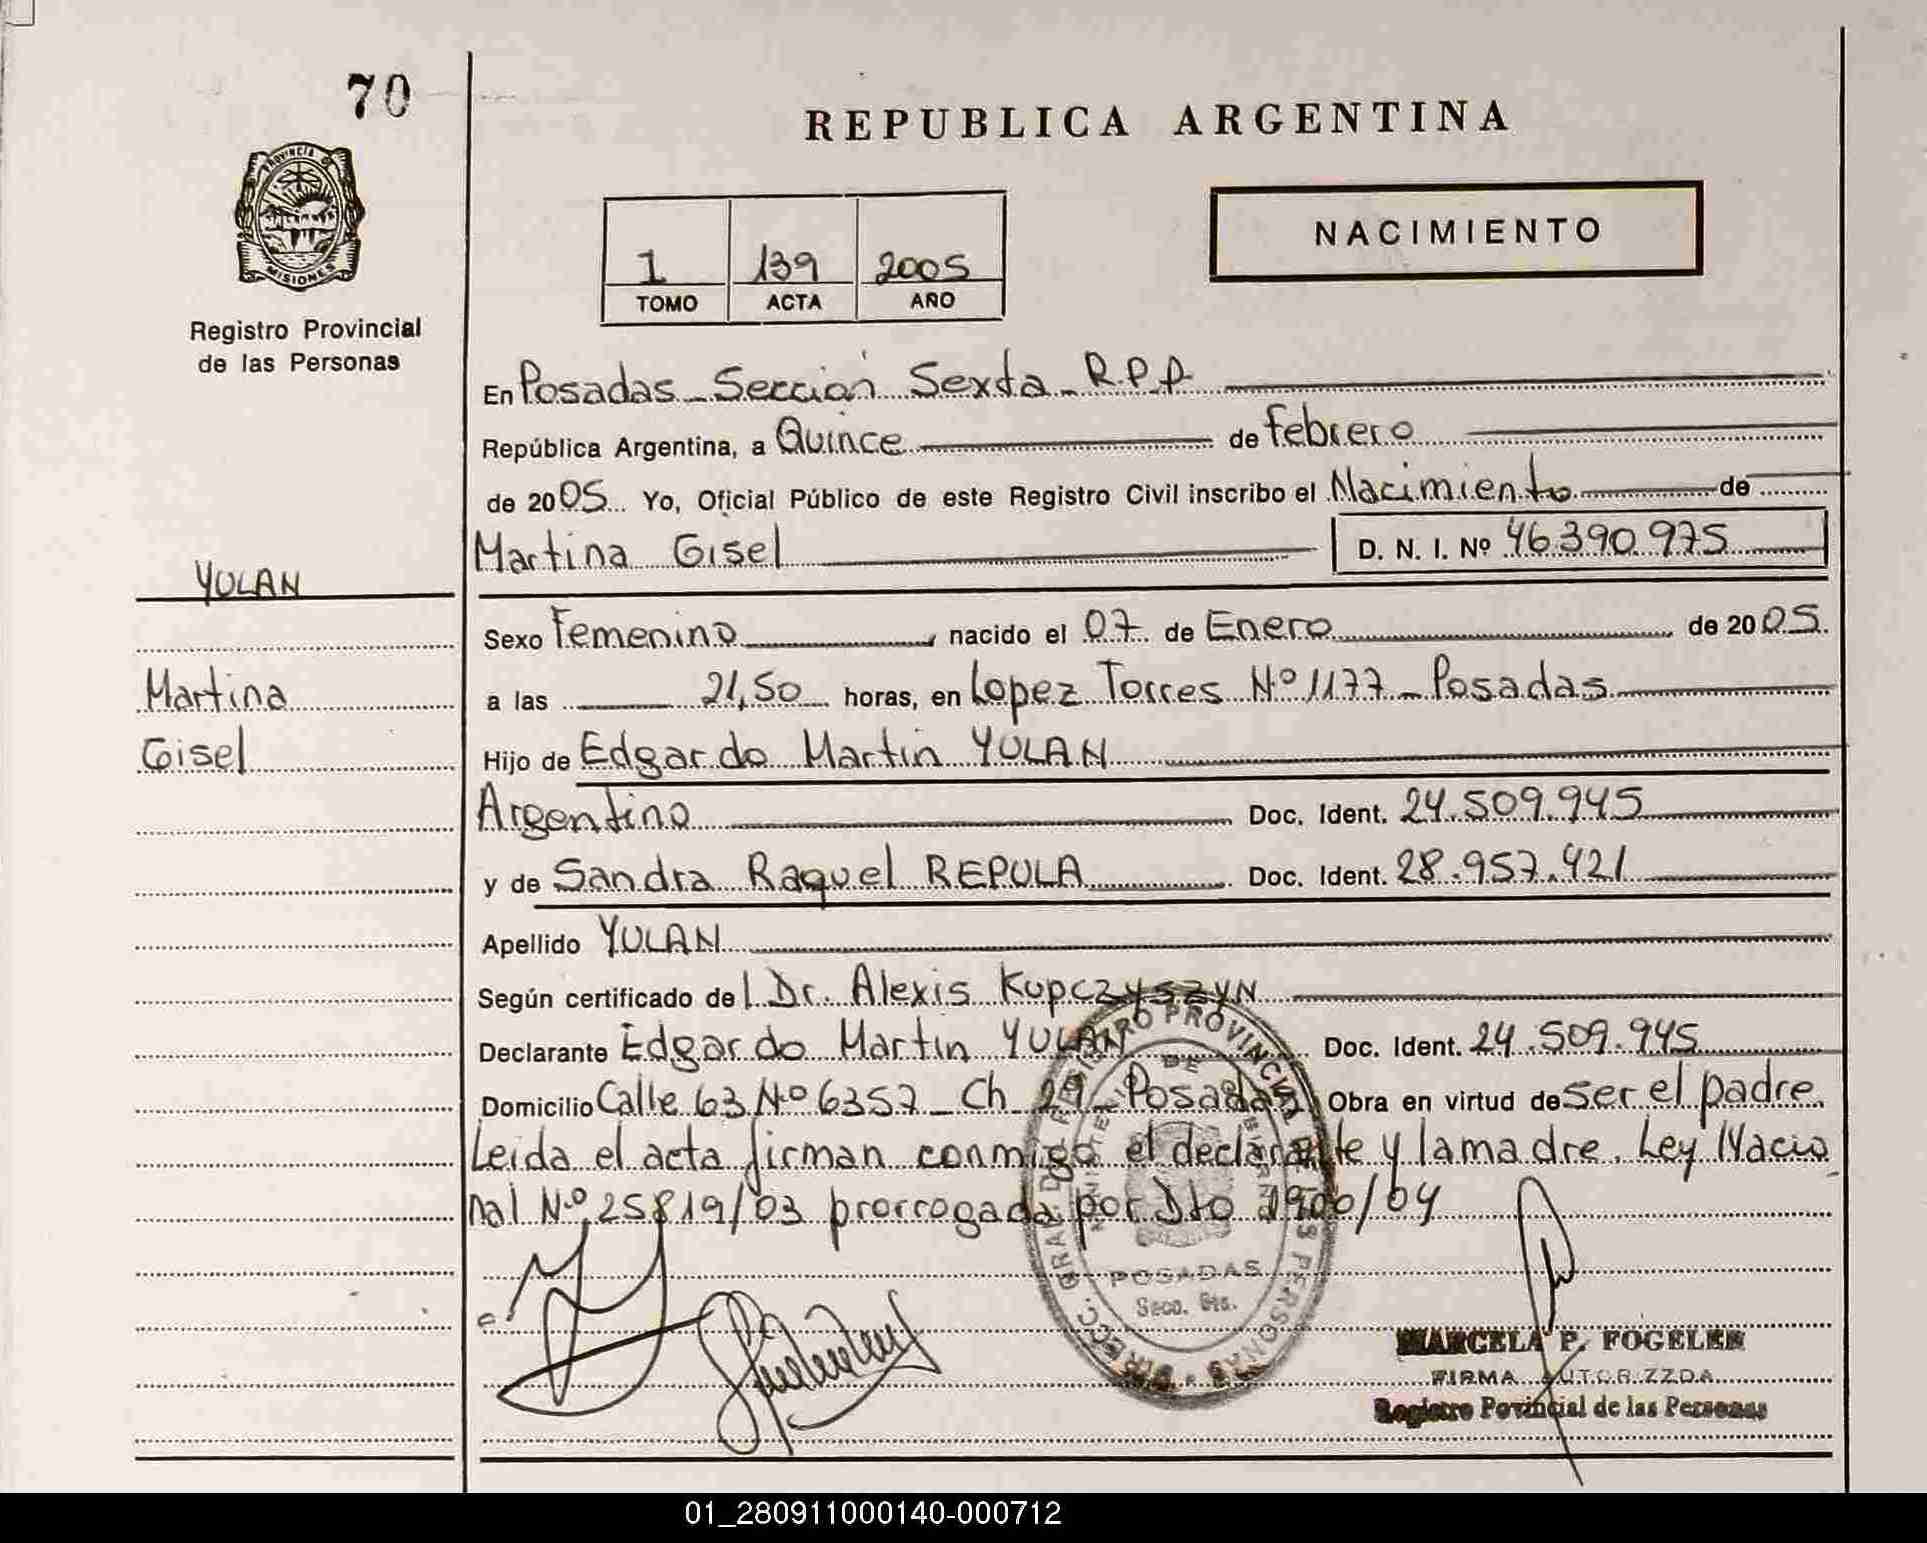 70
REPUBLICA ARGENTINA
PROVINCIA DE
MISIONES
NACIMIENTO
1 139 2005
TOMO ACTA AÑO
Registro Provincial
de las Personas
En Posadas - Sección Sexta - R.P.P
República Argentina, a Quince de febrero
de 2005 Yo, Oficial Público de este Registro Civil inscribo el Nacimiento de
Martina Gisel D. N. I. Nº 46.390.975
YULAN
Sexo Femenino, nacido el 07 de Enero de 2005
Martina
a las 21,50 horas, en Lopez Torres Nº 1177 - Posadas
Gisel
Hijo de Edgardo Martin YULAN
Argentino Doc. Ident. 24.509.945
y de Sandra Raquel REPULA Doc. Ident. 28.957.421
Apellido YULAN
Según certificado del Dr. Alexis Kupczyszyn
Declarante Edgardo Martin YULAN Doc. Ident. 24.509.945
Domicilio Calle 63 Nº 6357 - Ch 29 - Posadas Obra en virtud de ser el padre.
Leida el acta firman conmigo el declarante y la madre. Ley Nacio
nal Nº 25819/03 prorrogada por Dto 1900/04
REGISTRO PROVINCIAL DE LAS PERSONAS
POSADAS
Secc. 6ta.
MARCELA P. FOGELER
FIRMA AUTORIZZDA
Registro Povincial de las Personas
01_280911000140-000712